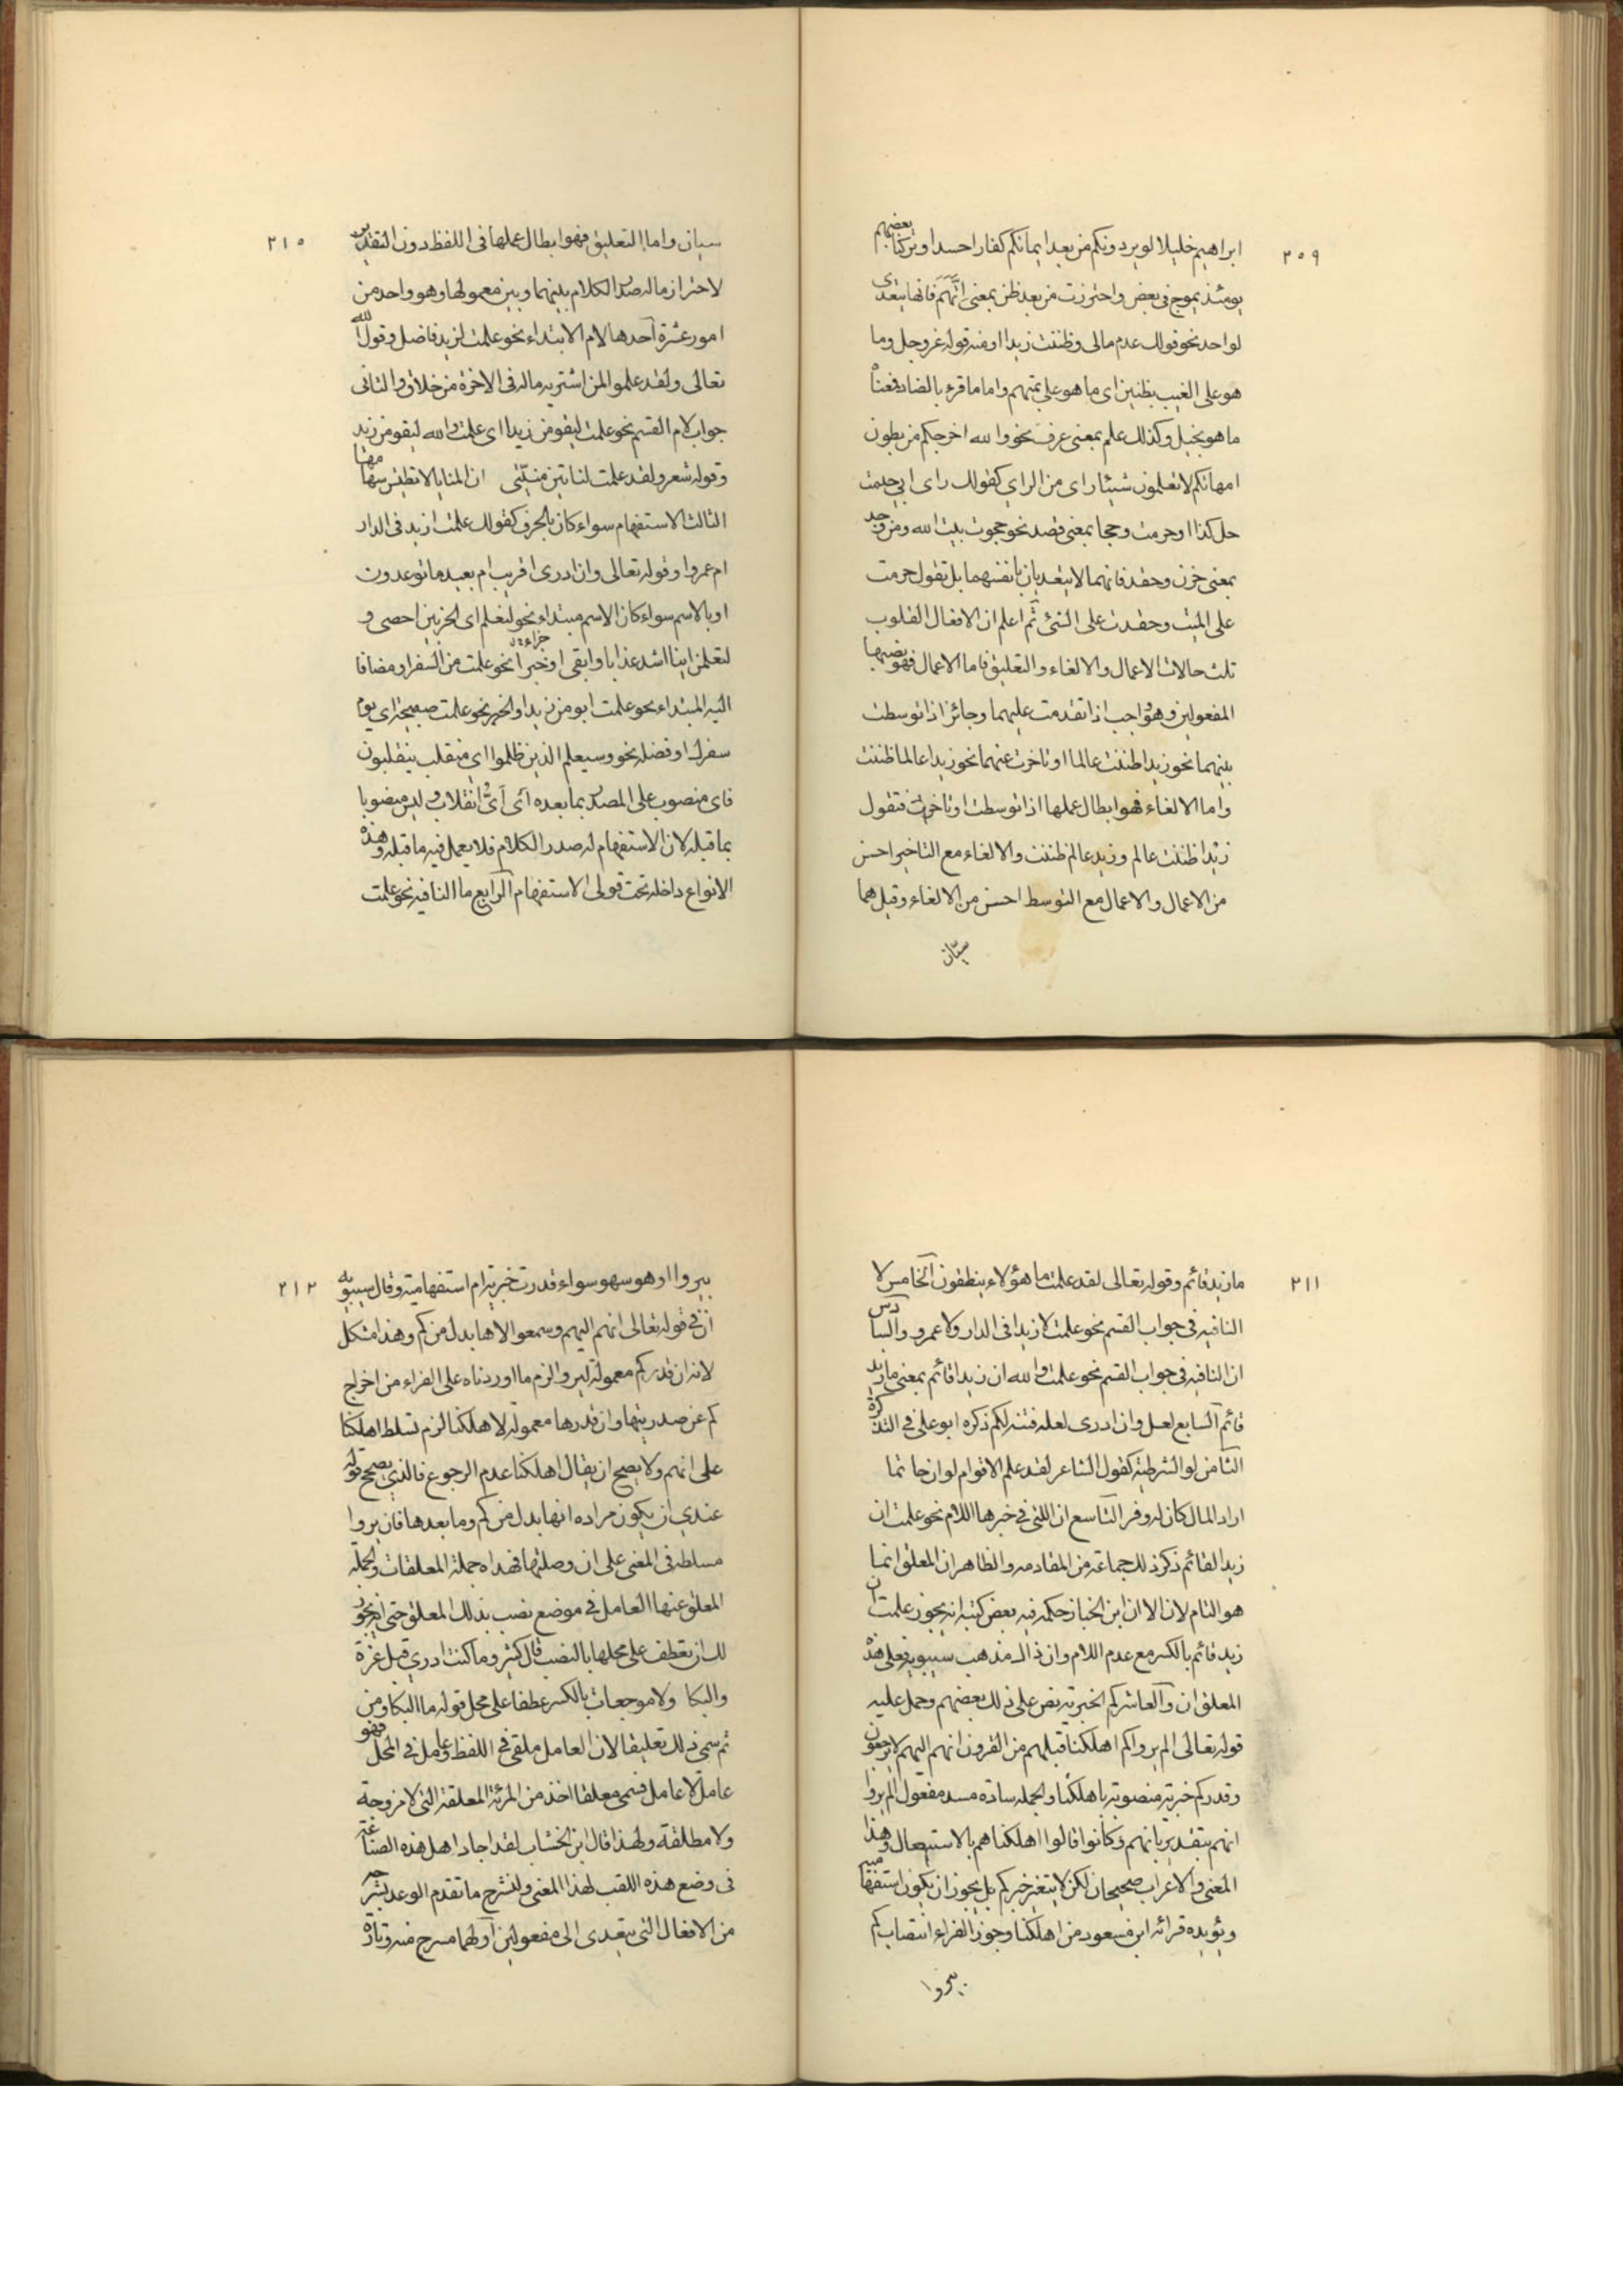 ٢٠٩
ابراهيم خليلا لو يردونكم من بعد ايمانكم كفارا حسدا وتركنا بعضهم
يومئذ يموج فى بعض واحترزت من بعد ظن بمعنى اتهم فانها يتعدى
لواحد نحو قولك عدم مالى وظننت زيدا ومنه قوله عز وجل وما
هو على الغيب بظنين اى ما هو على بمتهم واما ما قرء بالضاد فمعناه
ما هو بخيل وكذلك علم بمعنى عرف نحو والله اخرجكم من بطون
امهاتكم لا تعلمون شيئا راى من الراي كقولك راى ابى حنيفة
حل كذا او حرمت وحجا بمعنى قصد نحو حجوت بيت الله ومن وجد
بمعنى حزن وحقد فانهما لا يتعديان بانفسهما بل تقول حزمت
على الميت وحقدت على الشئ ثم اعلم ان الافعال القلوب
ثلث حالات الاعمال والالغاء والتعليق فاما الاعمال فهو نصبها
المفعولين وهو واجب اذا تقدمت عليهما وجائز اذا توسطت
بينهما نحو زيدا ظننت عالما او تاخرت عنهما نحو زيدا عالما ظننت
واما الالغاء فهو ابطال عملها اذا توسطت او تاخرت فتقول
زيد ظننت عالم وزيد عالم ظننت والالغاء مع التاخير احسن
من الاعمال والاعمال مع التوسط احسن من الالغاء وقيل هما
سيّان
٢١٠
سيان واما التعليق فهو ابطال عملها فى اللفظ دون التقدير
لاعتراض ماله صدر الكلام بينهما وبين معمولها وهو واحد من
امور عشرة احدها لام الابتداء نحو علمت لزيد فاضل وقول الله
تعالى ولقد علموا لمن اشتريه ماله فى الاخرة من خلاق والثانى
جواب لام القسم نحو علمت ليقومن زيد اى علمت والله ليقومن زيد
وقوله شعر ولقد علمت لتاتين منيتى ان المنايا لا تطيش سهامها
الثالث الاستفهام سواء كان بالحرف كقولك علمت ازيد فى الدار
ام عمرو او قوله تعالى وان ادرى اقريب ام بعيد ما توعدون
او بالاسم سواء كان الاسم مبتداء نحو لنعلم اى الحزبين احصى و
لتعلمن اينا اشد عذابا وابقى او خبرا نحو علمت من السفر او مضافا
اليه المبتداء نحو علمت ابو من زيد او الخبر نحو علمت صبيحة اى يوم
سفرك او فضله نحو وسيعلم الذين ظلموا اى منقلب ينقلبون
فاى منصوب على المصدر بما بعده اى اىّ انقلاب وليس منصوبا
بما قبله لان الاستفهام له صدر الكلام فلا يعمل فيه ما قبله وهذه
الانواع داخلة تحت قولى الاستفهام الرابع ما النافيه نحو علمت
٢١١
ما زيد قائم وقوله تعالى لقد علمت ما هؤلاء ينطقون الخامس لا
النافيه فى جواب القسم نحو علمت لا زيد فى الدار ولا عمرو والسادس
ان النافيه فى جواب القسم نحو علمت والله ان زيدا قائم بمعنى ما زيد
قائم السابع لعل وان ادرى لعله فتنه لكم ذكره ابو على فى التذكرة
الثامن لو الشرطية كقول الشاعر لقد علم الاقوام لو ان حاتما
اراد المال كان له وفر التاسع ان اللتى فى خبرها اللام نحو علمت ان
زيدا لقائم ذكر ذلك جماعة من المقادمه والظاهر ان المعلق انما
هو اللام لان الا ان ابن الخباز حكى فيه بعض كتبه انه يجوز علمت ان
زيد قائم بالكسر مع عدم اللام وان ذالك مذهب سيبويه فعلى هذه
المعلق ان والعاشر كم الخبرية نص على ذلك بعضهم وحمل عليه
قوله تعالى الم يروا كم اهلكنا قبلهم من القرون انهم اليهم لا يرجعون
وقدر كم خبرية منصوبة باهلكنا والجمله سادة مسد مفعول الم يروا
انهم بتقدير بانهم وكانوا قالوا اهلكناهم بالاستيصال وهذا
المعنى والاعراب صحيحان لكن لا يتغير خبر كم بل يجوز ان يكون استفهامية
ويؤيده قرائة ابن مسعود من اهلكنا وجوز الفراء انتصاب كم
يروا
٢١٢
بيروا او هو سهو سواء قدرت خبرية ام استفهامية وقال سيبويه
ان فى قوله تعالى انهم اليهم وسمعوا الاها بدل من كم وهذا مشكل
لانه ان قدر كم معمولة ليروا لزم ما اوردناه على الفراء من اخراج
كم عن صدريتها وان قدرها معمولة لاهلكنا لزم تسلط اهلكنا
على انهم ولا يصح ان يقال اهلكنا عدم الرجوع فالذي يصح قوله
عندي ان يكون مراده انها بدل من كم وما بعدها فان يروا
مسلطة فى المعنى على ان وصلتها فهذه جملة المعلقات والجملة
المعلق عنها العامل فى موضع نصب بذلك المعلق حتى انه يجوز
لك ان تعطف على محلها بالنصب قال كثير وما كنت ادري قبل عزة
ما البكا ولا موجعات بالكسر عطفا على محل قوله ما البكا ومن
ثم سمى ذلك تعليقا لان العامل ملقى فى اللفظ وعامل فى المحل فهو
عامل لا عامل فسمى معلقا اخذ من المرئة المعلقة التى لا مزوجة
ولا مطلقة ولهذا قال ابن الخشاب لقد اجاد اهل هذه الصناعة
فى وضع هذه اللقب لهذا المعنى ولنشرح ما تقدم الوعد بشرحه
من الافعال التى يتعدى الى مفعولين اولهما مسرح منه وتارة